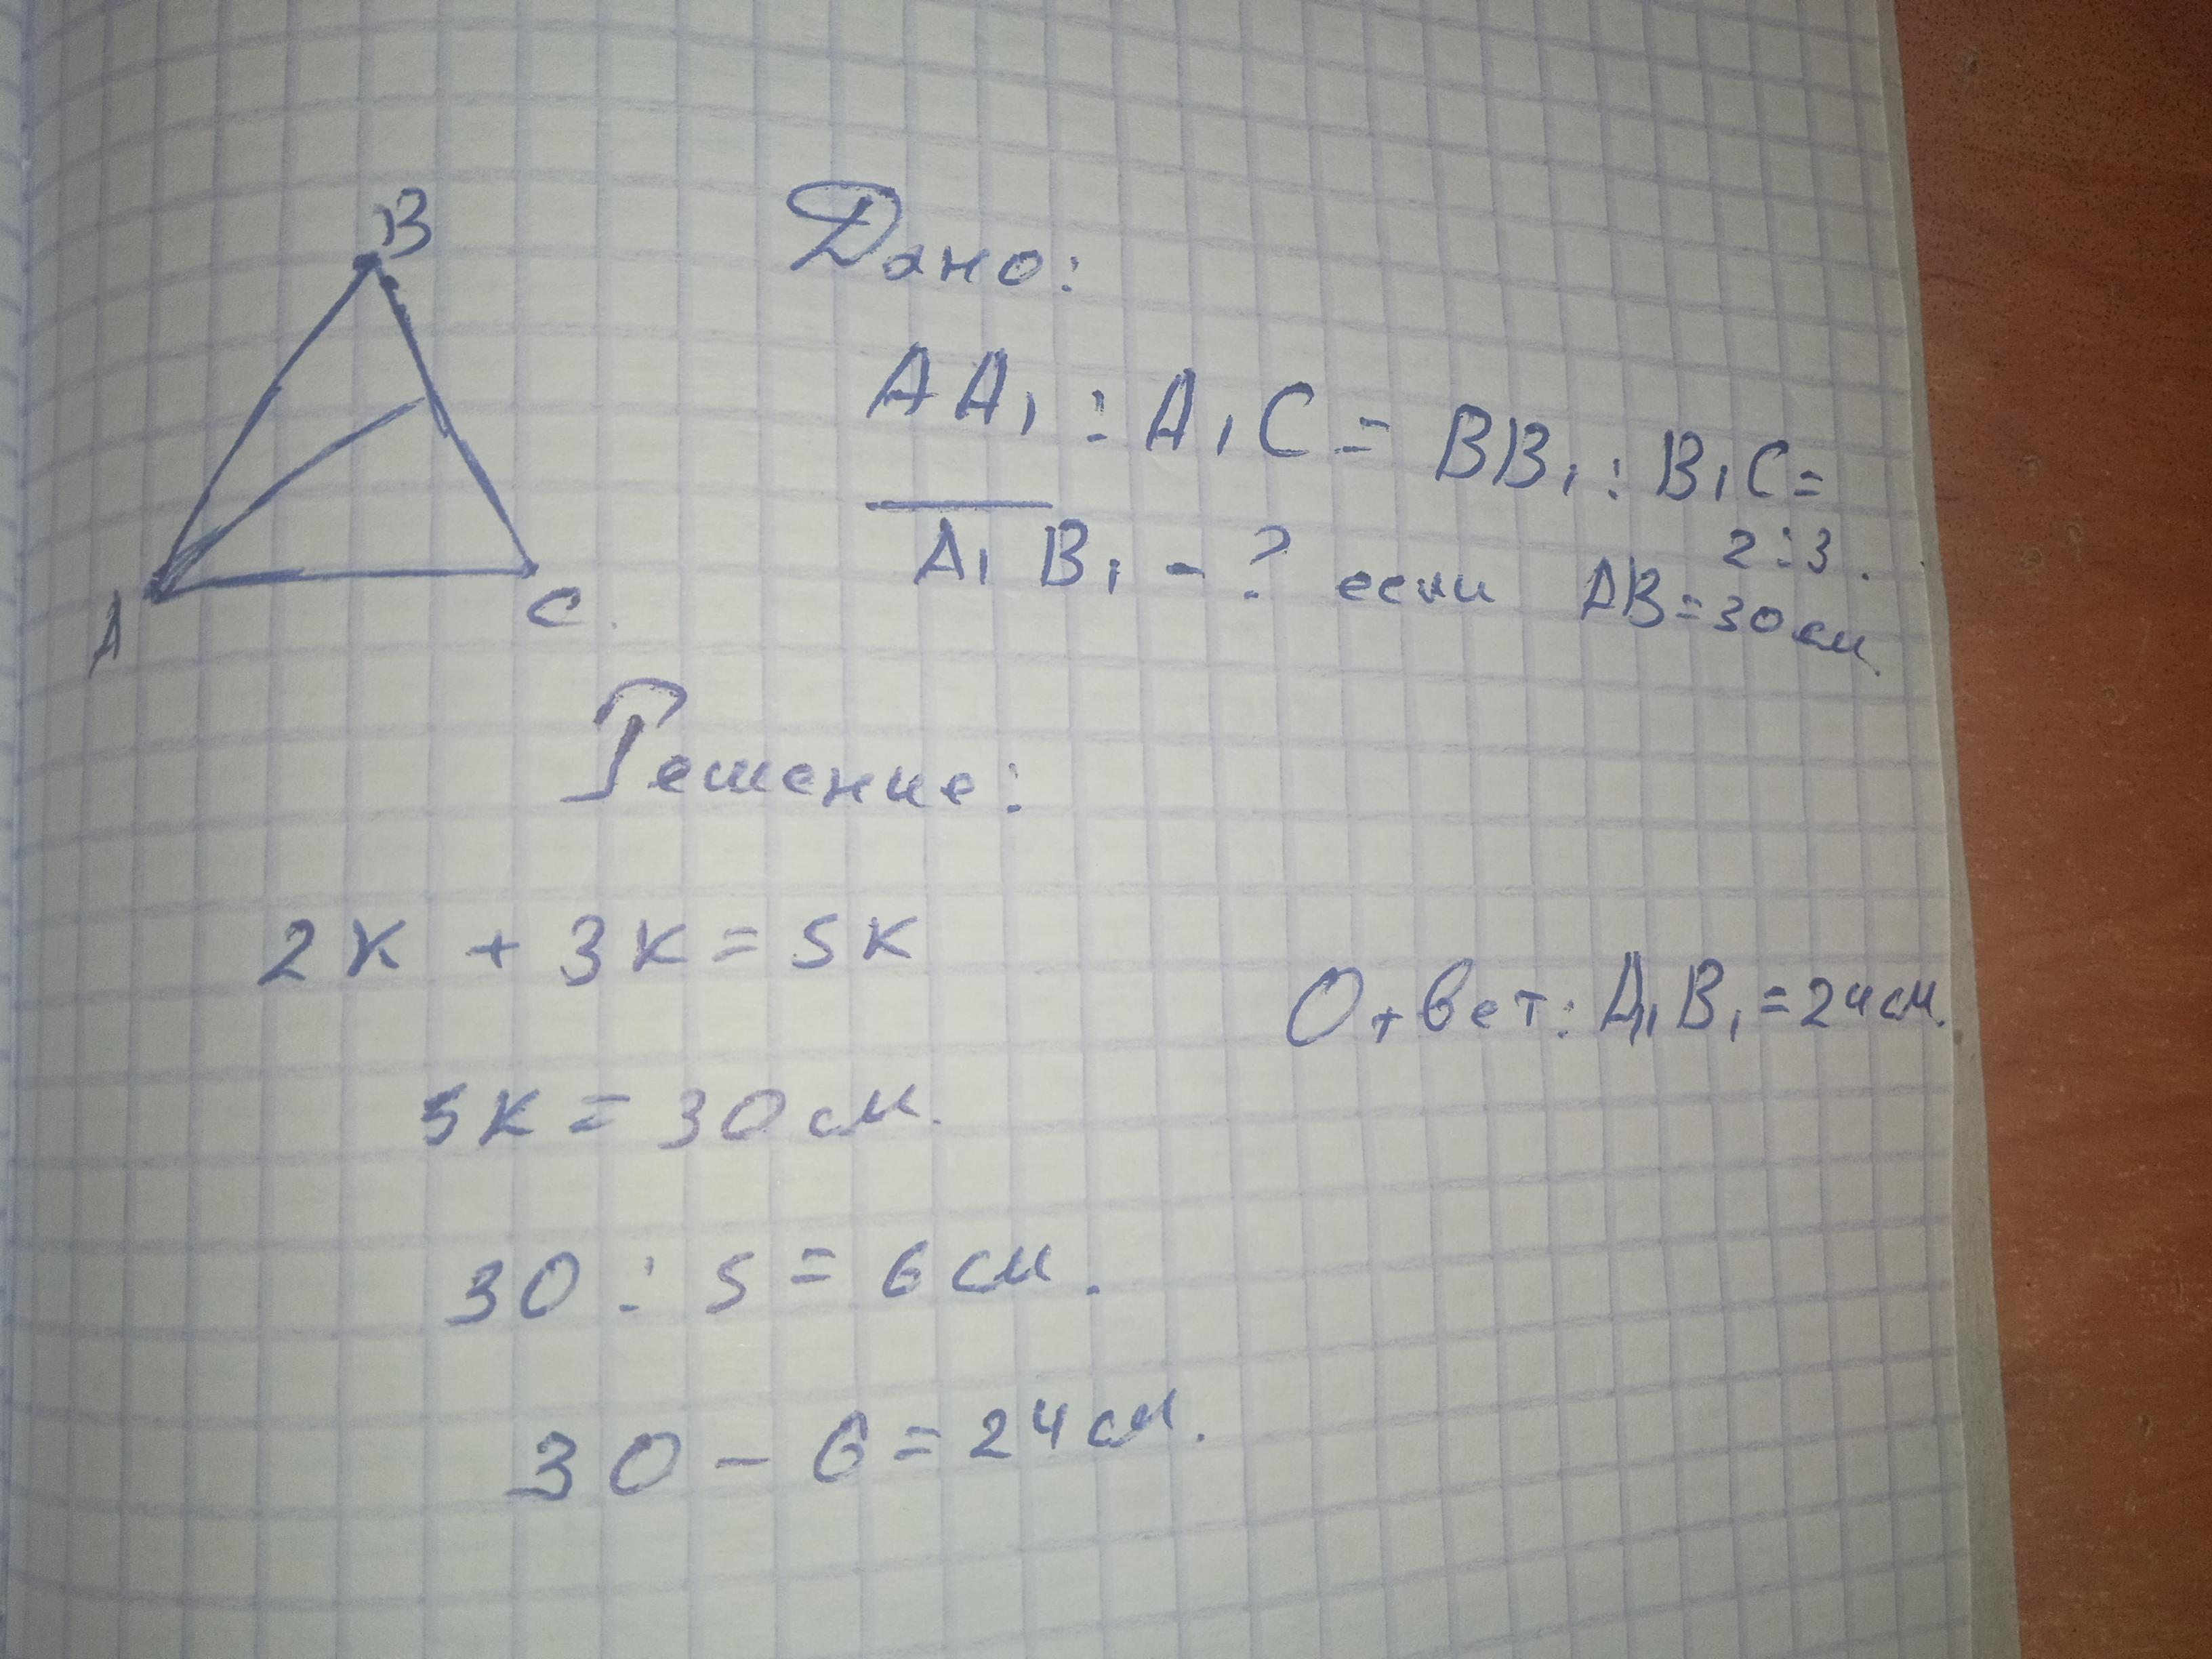 B
A
C.
Дано:
AA₁ : A₁C = BB₁ : B₁C =
2:3.
A₁ B₁ - ? если AB = 30 см.
Решение:
2к + 3к = 5к
5к = 30 см.
30 : 5 = 6 см.
30 - 6 = 24 см.
Ответ: A₁B₁ = 24 см.